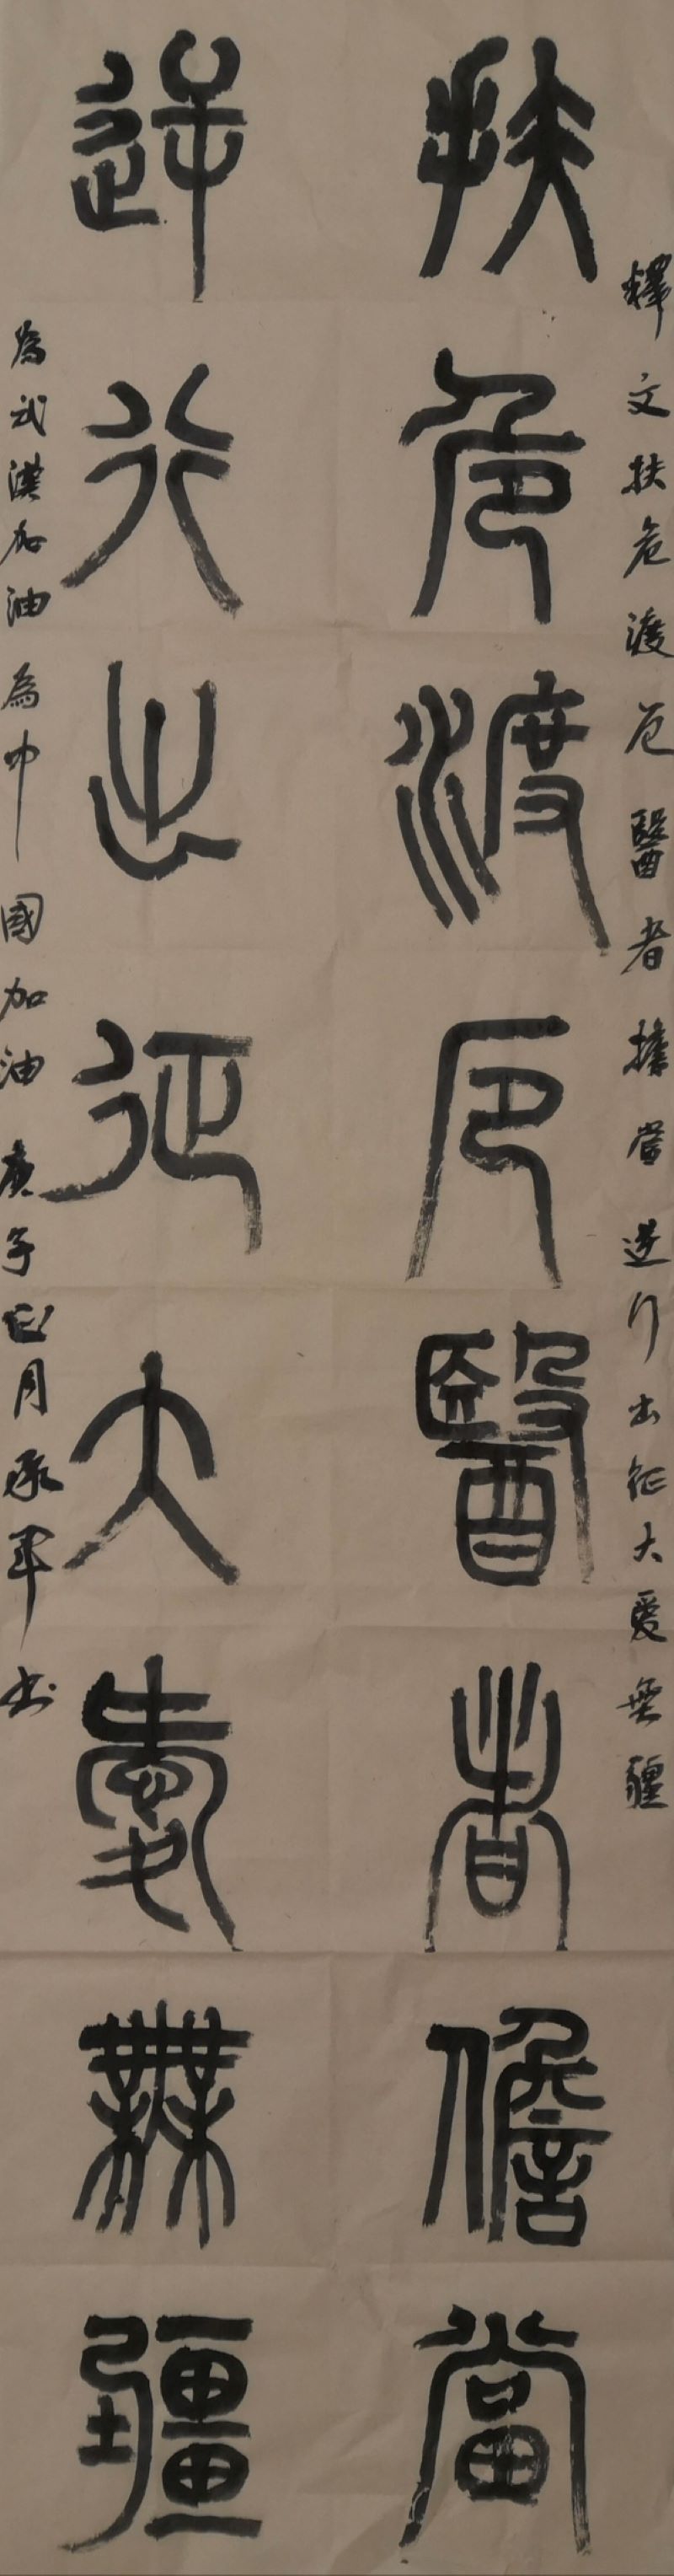 釋文扶危渡厄醫者擔當逆行出征大愛無疆
扶危渡厄醫者儋當
逆行出征大愛無疆
為武漢加油為中國加油庚子正月承軍书